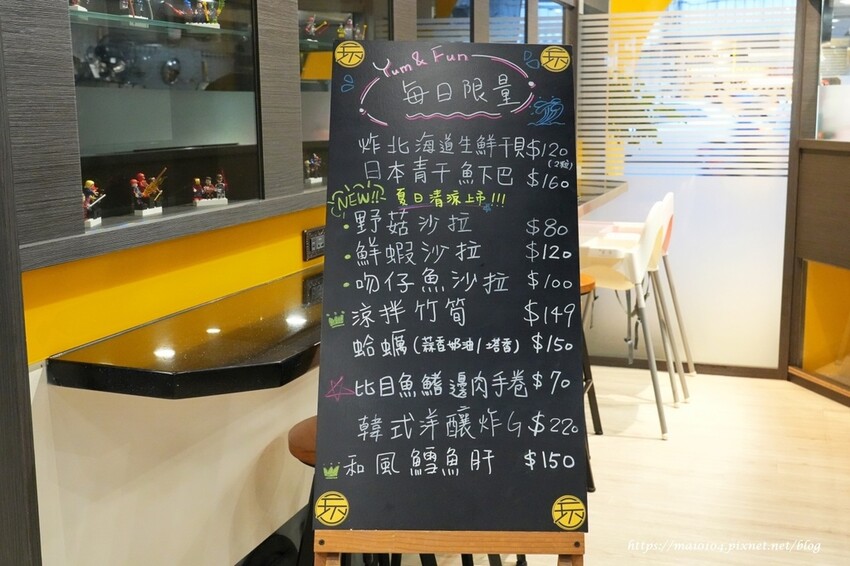 玩 玩
Yum & Fun
每日限量
炸北海道生鮮干貝$120
(2粒)
日本青干魚下巴 $160
NEW!! 夏日清涼上市!!!
·野菇沙拉 $80
·鮮蝦沙拉 $120
·吻仔魚沙拉 $100
涼拌竹筍 $149
蛤蠣(蒜香奶油/塔香) $150
比目魚鰭邊肉手卷 $70
韓式洋釀炸G $220
和風鱈魚肝 $150
玩 玩
https://mai0104.pixnet.net/blog